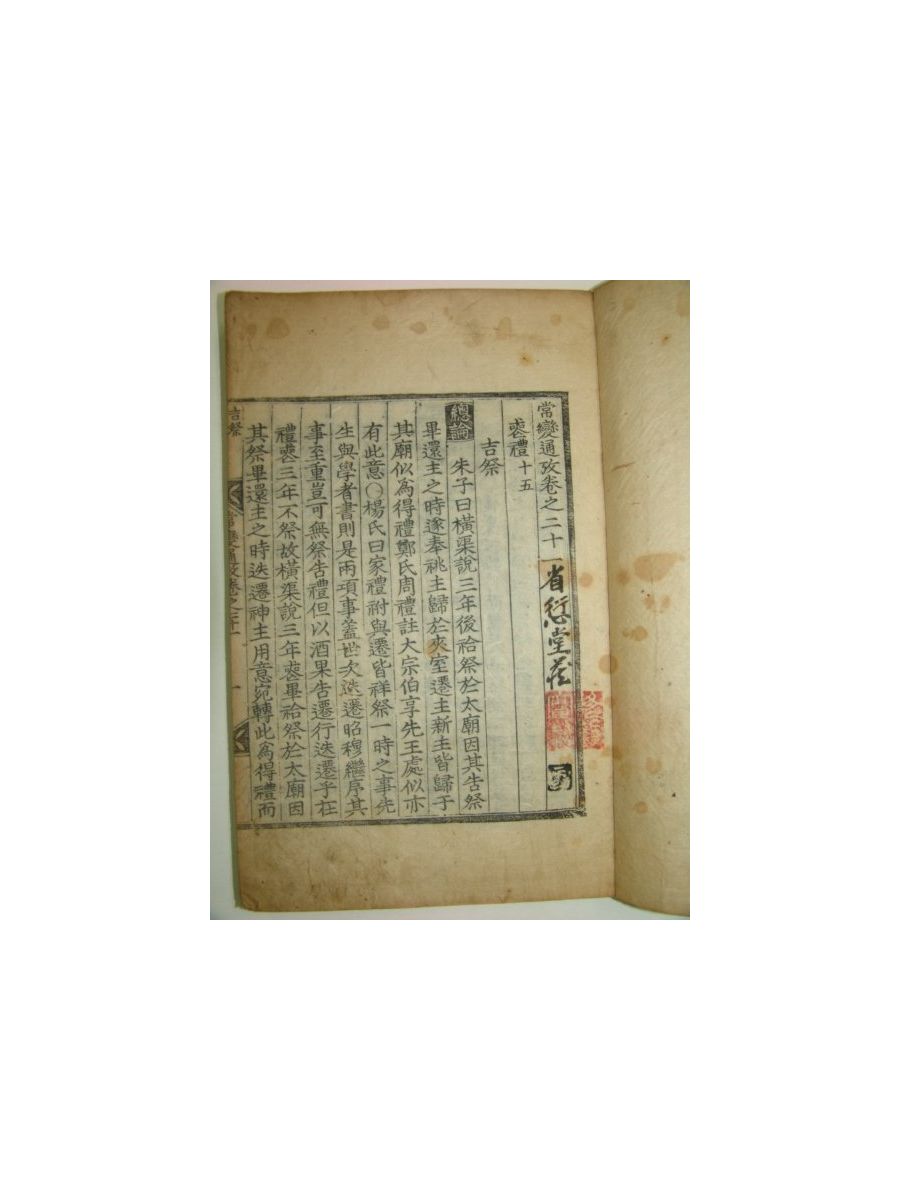 常變通攷卷之二十
省愆堂藏
喪禮十五
吉祭
總論
朱子曰橫渠說三年後祫祭於太廟因其告祭
畢還主之時遂奉祧主歸於夾室遷主新主皆歸于
其廟似爲得禮鄭氏周禮註大宗伯享先王處似亦
有此意〇楊氏曰家禮祔與遷皆祥祭一時之事先
生與學者書則是兩項事蓋世次迭遷昭穆繼序其
事至重豈可無祭告禮但以酒果告遷行迭遷乎在
禮喪三年不祭故橫渠說三年喪畢祫祭於太廟因
其祭畢還主之時迭遷神主用意宛轉此爲得禮而
吉祭
常變通攷卷之二十
一